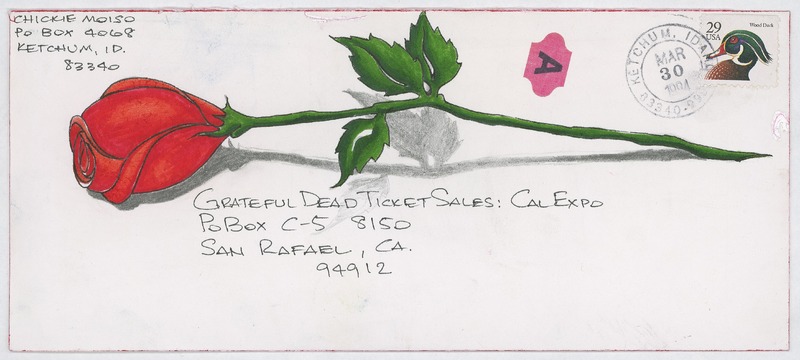 CHICKIE MOISO
PO BOX 4068
KETCHUM, ID.
83340
29
USA
Wood Duck
KETCHUM, IDA
MAR
30
1994
83340
A
GRATEFUL DEAD TICKET SALES: CAL EXPO
PO BOX C-S 8150
SAN RAFAEL, CA.
94912